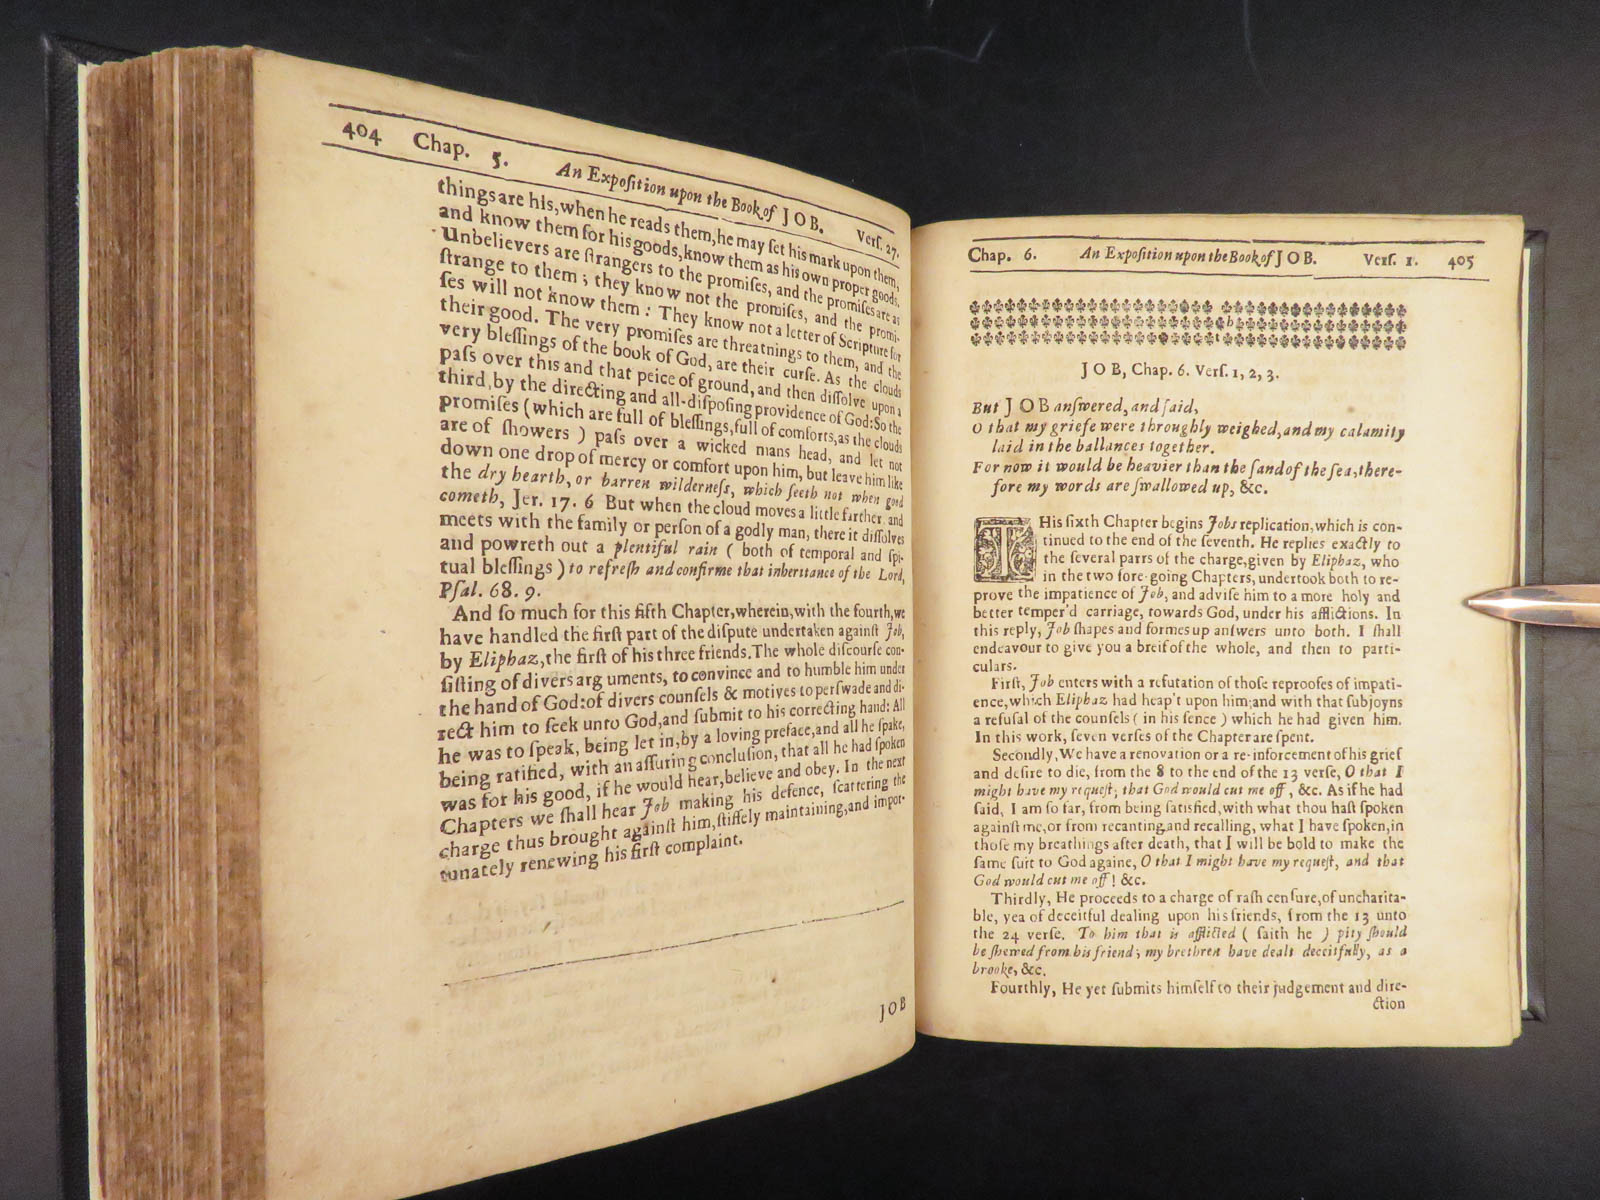 404 Chap. 5. An Expoſition upon the Book of JOB. Verſ. 27.
things are his, when he reads them, he may ſet his mark upon them,
and know them for his goods, know them as his own proper goods.
Unbelievers are ſtrangers to the promiſes, and the promiſes are as
ſtrange to them; they know not the promiſes, and the promi-
ſes will not know them: They know not a letter of Scripture for
their good. The very promiſes are threatnings to them, and the
very bleſſings of the book of God, are their curſe. As the clouds
paſs over this and that peice of ground, and then diſſolve upon a
third, by the directing and all-diſpoſing providence of God: So the
promiſes (which are full of bleſſings, full of comforts, as the clouds
are of ſhowers ) paſs over a wicked mans head, and let not
down one drop of mercy or comfort upon him, but leave him like
the dry hearth, or barren wilderneſs, which ſeeth not when good
cometh, Jer. 17. 6 But when the cloud moves a little farther, and
meets with the family or perſon of a godly man, there it diſſolves
and powreth out a plentiful rain ( both of temporal and ſpi-
tual bleſſings ) to refreſh and confirme that inheritance of the Lord,
Pſal. 68. 9.
And ſo much for this fifth Chapter, wherein, with the fourth, we
have handled the firſt part of the diſpute undertaken againſt Job,
by Eliphaz, the firſt of his three friends. The whole diſcourſe con-
ſiſting of divers arguments, to convince and to humble him under
the hand of God: of divers counſels & motives to perſwade and di-
rect him to ſeek unto God, and ſubmit to his correcting hand: All
he was to ſpeak, being let in, by a loving preface, and all he ſpake,
being ratified, with an aſſuring concluſion, that all he had ſpoken
was for his good, if he would hear, believe and obey. In the next
Chapters we ſhall hear Job making his defence, ſcattering the
charge thus brought againſt him, ſtiffely maintaining, and impor-
tunately renewing his firſt complaint.
JOB
Chap. 6. An Expoſition upon the Book of JOB. Verſ. 1. 405
JOB, Chap. 6. Verſ. 1, 2, 3.
But JOB anſwered, and ſaid,
O that my griefe were throughly weighed, and my calamity
laid in the ballances together.
For now it would be heavier than the ſand of the ſea, there-
fore my words are ſwallowed up, &c.
THis ſixth Chapter begins Jobs replication, which is con-
tinued to the end of the ſeventh. He replies exactly to
the ſeveral parts of the charge, given by Eliphaz, who
in the two fore-going Chapters, undertook both to re-
prove the impatience of Job, and adviſe him to a more holy and
better temper'd carriage, towards God, under his afflictions. In
this reply, Job ſhapes and formes up anſwers unto both. I ſhall
endeavour to give you a breif of the whole, and then to parti-
culars.
Firſt, Job enters with a refutation of thoſe reproofes of impati-
ence, which Eliphaz had heap't upon him; and with that ſubjoyns
a refuſal of the counſels ( in his ſence ) which he had given him.
In this work, ſeven verſes of the Chapter are ſpent.
Secondly, We have a renovation or a re-inforcement of his grief
and deſire to die, from the 8 to the end of the 13 verſe, O that I
might have my requeſt; that God would cut me off, &c. As if he had
ſaid, I am ſo far, from being ſatisfied, with what thou haſt ſpoken
againſt me, or from recanting and recalling, what I have ſpoken, in
thoſe my breathings after death, that I will be bold to make the
ſame ſuit to God againe, O that I might have my requeſt, and that
God would cut me off! &c.
Thirdly, He proceeds to a charge of raſh cenſure, of uncharita-
ble, yea of deceitful dealing upon his friends, from the 13 unto
the 24 verſe. To him that is afflicted ( ſaith he ) pity ſhould
be ſhewed from his friend; my brethren have dealt deceitfully, as a
brooke, &c.
Fourthly, He yet ſubmits himſelf to their judgement and dire-
ction